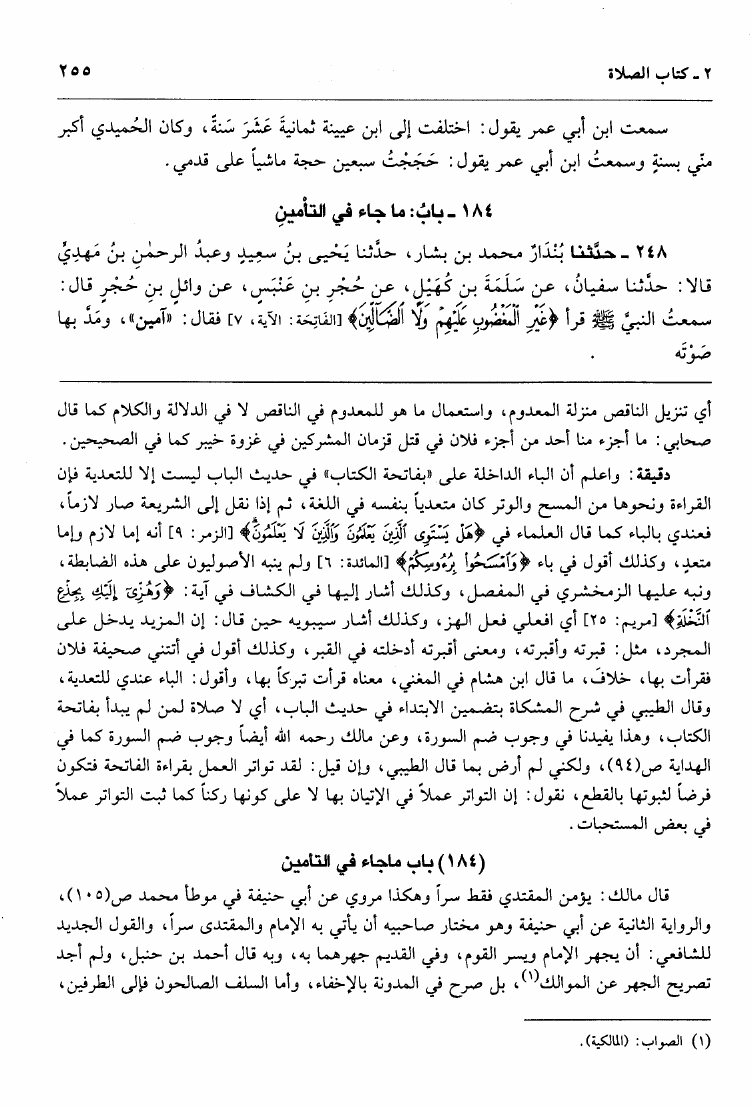 ٢ ـ كتاب الصلاة
٢٥٥
سمعت ابن أبي عمر يقول: اختلفت إلى ابن عيينة ثمانيةَ عَشَرَ سَنةً، وكان الحُميدي أكبر
منّي بسنةٍ وسمعتُ ابن أبي عمر يقول: حَجَجْتُ سبعين حجة ماشياً على قدمي.
١٨٤ ـ بابُ: ما جاء في التأمينِ
٢٤٨ ـ حدَّثنا بُنْدَارٌ محمد بن بشار، حدَّثنا يَحْيى بنُ سعِيدٍ وعبدُ الرحمٰنِ بنُ مَهدِيٍّ
قالا: حدَّثنا سفيانُ، عن سَلَمَةَ بنِ كُهَيْلٍ، عن حُجْرِ بنِ عَنْبَسٍ، عن وائلِ بنِ حُجْرٍ قال:
سمعتُ النبيَّ ﷺ قرأ ﴿غَيْرِ ٱلْمَغْضُوبِ عَلَيْهِمْ وَلَا ٱلضَّآلِّينَ﴾ [الفَاتِحَة: الآية، ٧] فقال: «آمين»، ومَدَّ بها
صَوْتَه .
أي تنزيل الناقص منزلة المعدوم، واستعمال ما هو للمعدوم في الناقص لا في الدلالة والكلام كما قال
صحابي: ما أجزء منا أحد من أجزء فلان في قتل قزمان المشركين في غزوة خيبر كما في الصحيحين.
دقيقة: واعلم أن الباء الداخلة على «بفاتحة الكتاب» في حديث الباب ليست إلا للتعدية فإن
القراءة ونحوها من المسح والوتر كان متعدياً بنفسه في اللغة، ثم إذا نقل إلى الشريعة صار لازماً،
فعندي بالباء كما قال العلماء في ﴿هَلْ يَسْتَوِى ٱلَّذِينَ يَعْلَمُونَ وَٱلَّذِينَ لَا يَعْلَمُونَ﴾ [الزمر: ٩] أنه إما لازم وإما
متعدٍ، وكذلك أقول في باء ﴿وَٱمْسَحُوا۟ بِرُءُوسِكُمْ﴾ [المائدة: ٦] ولم ينبه الأصوليون على هذه الضابطة،
ونبه عليها الزمخشري في المفصل، وكذلك أشار إليها في الكشاف في آية: ﴿وَهُزِّىٓ إِلَيْكِ بِجِذْعِ
ٱلنَّخْلَةِ﴾ [مريم: ٢٥] أي افعلي فعل الهز، وكذلك أشار سيبويه حين قال: إن المزيد يدخل على
المجرد، مثل: قبرته وأقبرته، ومعنى أقبرته أدخلته في القبر، وكذلك أقول في أتتني صحيفة فلان
فقرأت بها، خلاف، ما قال ابن هشام في المغني، معناه قرأت تبركاً بها، وأقول: الباء عندي للتعدية،
وقال الطيبي في شرح المشكاة بتضمين الابتداء في حديث الباب، أي لا صلاة لمن لم يبدأ بفاتحة
الكتاب، وهذا يفيدنا في وجوب ضم السورة، وعن مالك رحمه الله أيضاً وجوب ضم السورة كما في
الهداية ص(٩٤)، ولكني لم أرض بما قال الطيبي، وإن قيل: لقد تواتر العمل بقراءة الفاتحة فتكون
فرضاً لثبوتها بالقطع، نقول: إن التواتر عملاً في الإتيان بها لا على كونها ركناً كما ثبت التواتر عملاً
في بعض المستحبات.
(١٨٤) باب ماجاء في التأمين
قال مالك: يؤمن المقتدي فقط سراً وهكذا مروي عن أبي حنيفة في موطأ محمد ص(١٠٥)،
والرواية الثانية عن أبي حنيفة وهو مختار صاحبيه أن يأتي به الإمام والمقتدى سراً، والقول الجديد
للشافعي: أن يجهر الإمام ويسر القوم، وفي القديم جهرهما به، وبه قال أحمد بن حنبل، ولم أجد
تصريح الجهر عن الموالك(١)، بل صرح في المدونة بالإخفاء، وأما السلف الصالحون فإلى الطرفين،
(١) الصواب: (المالكية).